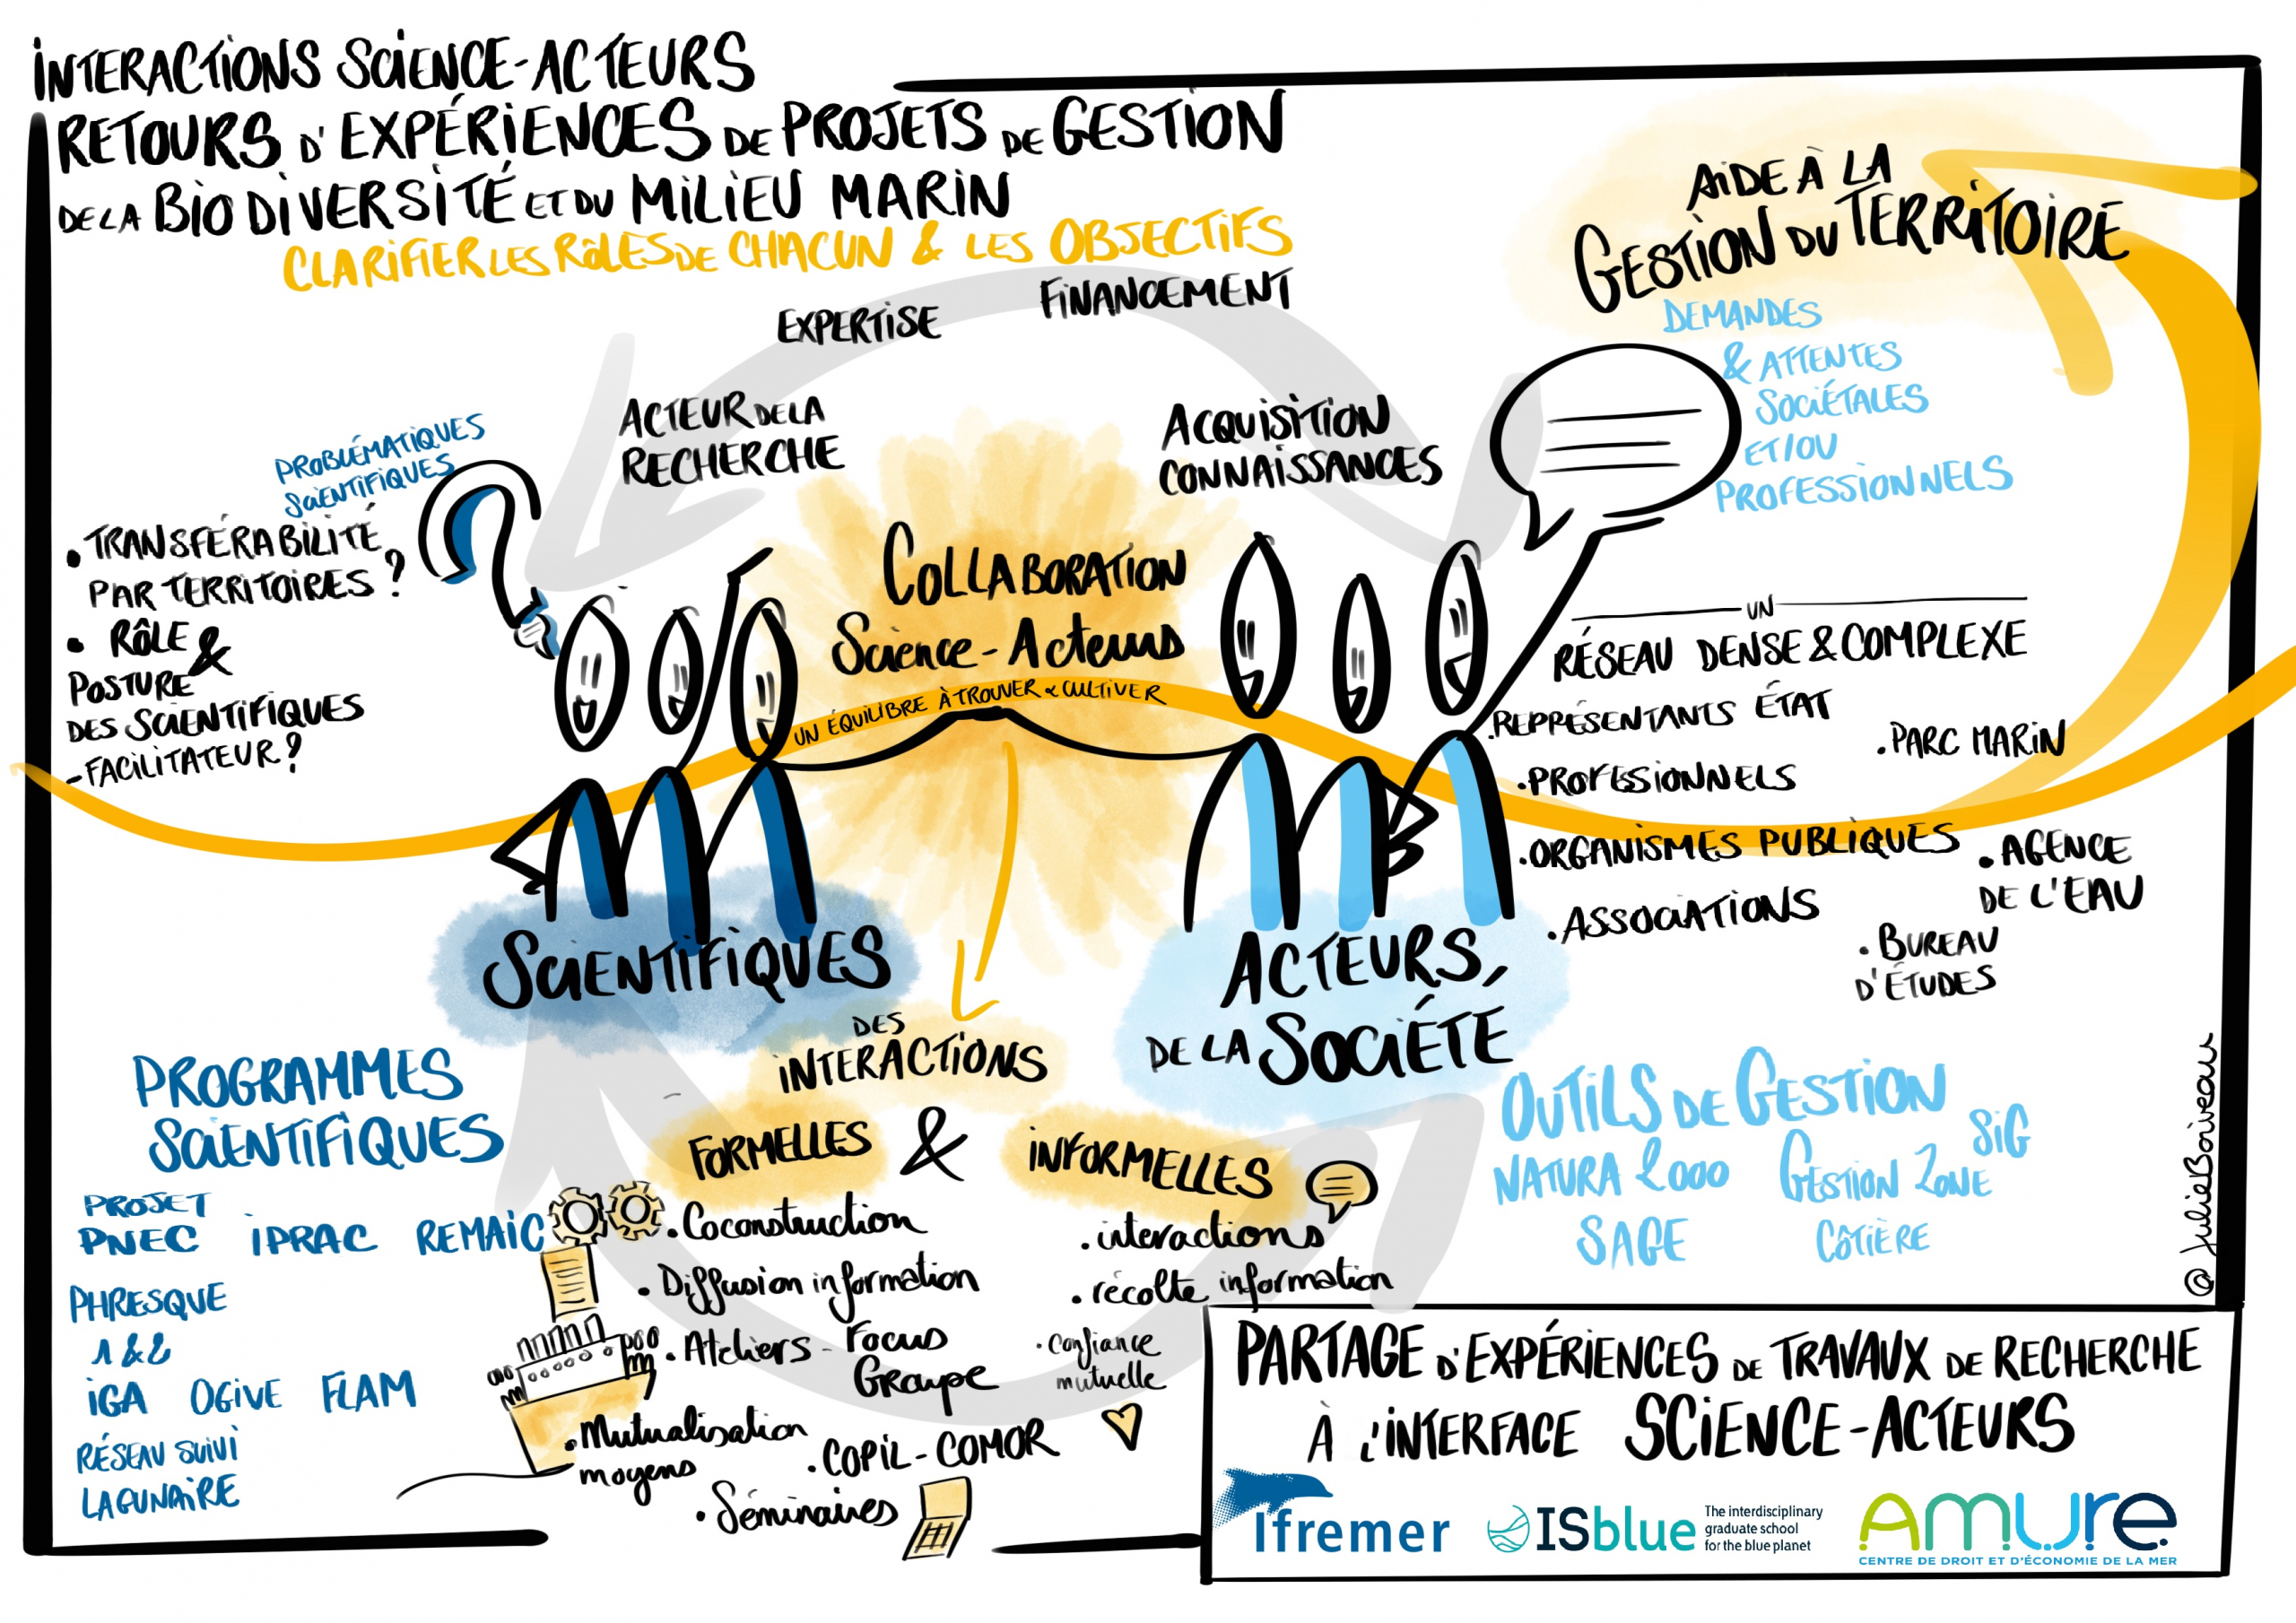 INTERACTIONS SCIENCE-ACTEURS
RETOURS D'EXPÉRIENCES DE PROJETS DE GESTION
DE LA BIODIVERSITÉ ET DU MILIEU MARIN
CLARIFIER LES RÔLES DE CHACUN & LES OBJECTIFS
EXPERTISE
FINANCEMENT
ACTEUR DE LA
RECHERCHE
ACQUISITION
CONNAISSANCES
AIDE À LA
GESTION DU TERRITOIRE
DEMANDES
& ATTENTES
SOCIÉTALES
ET/OU
PROFESSIONNELS
PROBLÉMATIQUES
SCIENTIFIQUES
• TRANSFÉRABILITÉ
PAR TERRITOIRES ?
• RÔLE &
POSTURE
DES SCIENTIFIQUES
- FACILITATEUR ?
COLLABORATION
Science-Acteurs
UN ÉQUILIBRE À TROUVER & CULTIVER
UN
RÉSEAU DENSE & COMPLEXE
• REPRÉSENTANTS ÉTAT
• PARC MARIN
• PROFESSIONNELS
• ORGANISMES PUBLIQUES
• AGENCE
DE L'EAU
• ASSOCIATIONS
• BUREAU
D'ÉTUDES
SCIENTIFIQUES
ACTEURS,
DE LA SOCIÉTÉ
DES
INTERACTIONS
FORMELLES & INFORMELLES
• Coconstruction
• Diffusion information
• Ateliers - Focus
Groupe
• Mutualisation
moyens
• COPIL - COMOR
• Séminaires
• interactions
• récolte information
• confiance
mutuelle
PROGRAMMES
SCIENTIFIQUES
PROJET
PNEC IPRAC REMAIC
PHRESQUE
1 & 2
IGA OGIVE FLAM
RÉSEAU SUIVI
LAGUNAIRE
OUTILS DE GESTION
SIG
NATURA 2000 GESTION ZONE
CÔTIÈRE
SAGE
@JulieBoiveau
PARTAGE D'EXPÉRIENCES DE TRAVAUX DE RECHERCHE
À L'INTERFACE SCIENCE-ACTEURS
Ifremer
ISblue
The interdisciplinary
graduate school
for the blue planet
AMURE
CENTRE DE DROIT ET D'ÉCONOMIE DE LA MER